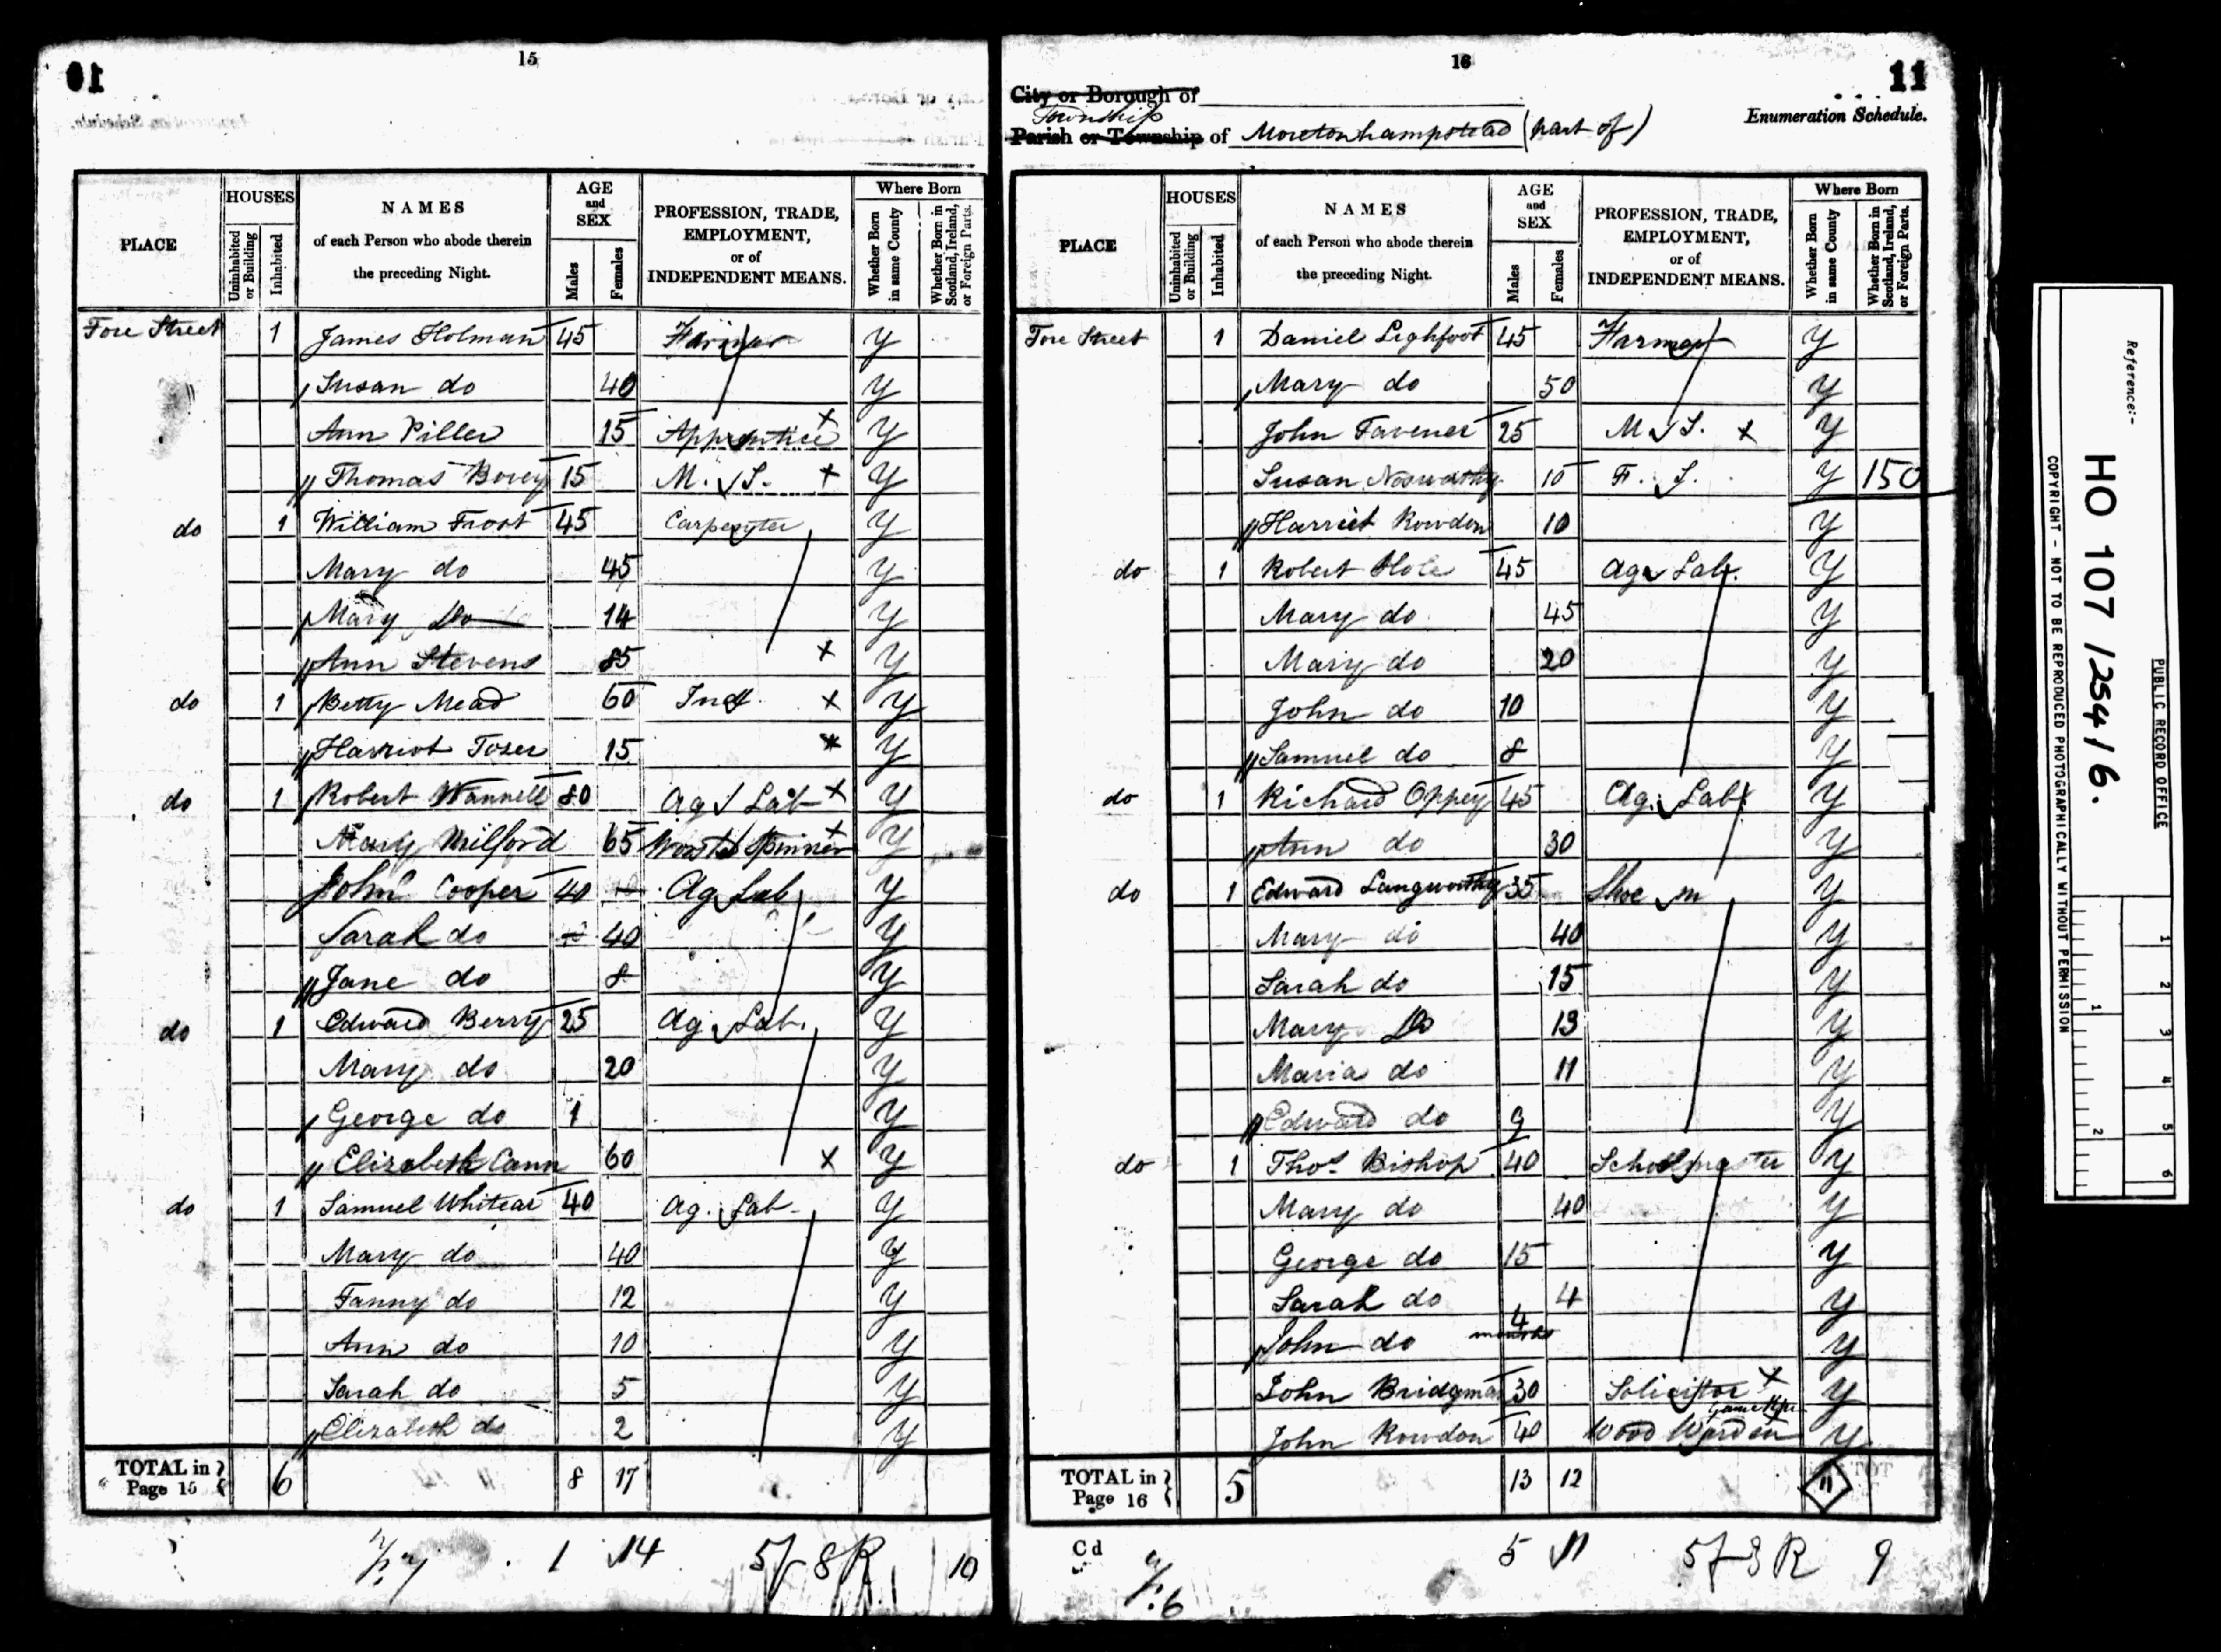 15
10
PLACE
HOUSES
Uninhabited or Building
Inhabited
NAMES
of each Person who abode therein
the preceding Night.
AGE and SEX
Males
Females
PROFESSION, TRADE, EMPLOYMENT, or of INDEPENDENT MEANS.
Where Born
Whether Born in same County
Whether Born in Scotland, Ireland, or Foreign Parts.
Fore Street 1 James Holman 45 Farmer y
Susan do 40 y
Ann Piller 15 Apprentice y
Thomas Bovey 15 M. S. y
do 1 William Frost 45 Carpenter y
Mary do 45 y
Mary Do 14 y
Ann Stevens 85 y
do 1 Betty Mead 60 Ind. y
Harriot Tozer 15 y
do 1 Robert Wannell 80 Ag Lab y
Mary Milford 65 Worsted Spinner y
John Cooper 40 Ag Lab y
Sarah do 40 y
Jane do 8 y
do 1 Edward Berry 25 Ag. Lab. y
Mary do 20 y
George do 1 y
Elizabeth Cann 60 y
do 1 Samuel Whitear 40 Ag. Lab y
Mary do 40 y
Fanny do 12 y
Ann do 10 y
Sarah do 5 y
Elizabeth do 2 y
TOTAL in Page 15 6 8 17
1 14 5 8 R 10
16
11
City or Borough of
Township
Parish or Township of Moretonhampstead (part of)
Enumeration Schedule.
PLACE
HOUSES
Uninhabited or Building
Inhabited
NAMES
of each Person who abode therein
the preceding Night.
AGE and SEX
Males
Females
PROFESSION, TRADE, EMPLOYMENT, or of INDEPENDENT MEANS.
Where Born
Whether Born in same County
Whether Born in Scotland, Ireland, or Foreign Parts.
Fore Street 1 Daniel Lighfoot 45 Farmer y
Mary do 50 y
John Favener 25 M. S. y
Susan Nosworthy 15 F. S. y 150
Harriet Rowdon 10 y
do 1 Robert Hole 45 Ag Lab. y
Mary do 45 y
Mary do 20 y
John do 10 y
Samuel do 8 y
do 1 Richard Oppey 45 Ag. Lab y
Ann do 30 y
do 1 Edward Langworthy 35 Shoe m y
Mary do 40 y
Sarah do 15 y
Mary Do 13 y
Maria do 11 y
Edward do 9 y
do 1 Thos. Bishop 40 Schoolmaster y
Mary do 40 y
George do 15 y
Sarah do 4 y
John do 4 months y
John Bridgman 30 Solicitor y
John Rowdon 40 Wood Warden y
TOTAL in Page 16 5 13 12 11
Cd 5 11 9
6
Reference:-
PUBLIC RECORD OFFICE
HO 107 / 254 / 6.
COPYRIGHT - NOT TO BE REPRODUCED PHOTOGRAPHICALLY WITHOUT PERMISSION
1 2 3 4 5 6
1 2